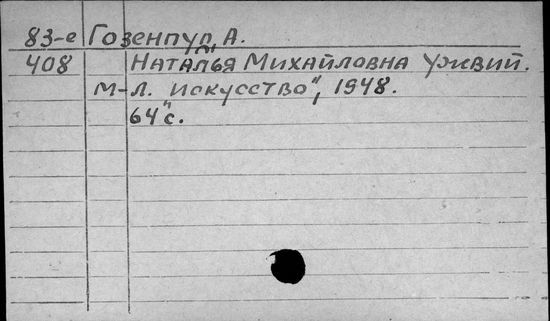 83-е Гозенпуд, А.
408 Наталья Михайловна Ужвий.
М-Л. "Искусство", 1948.
64 с.